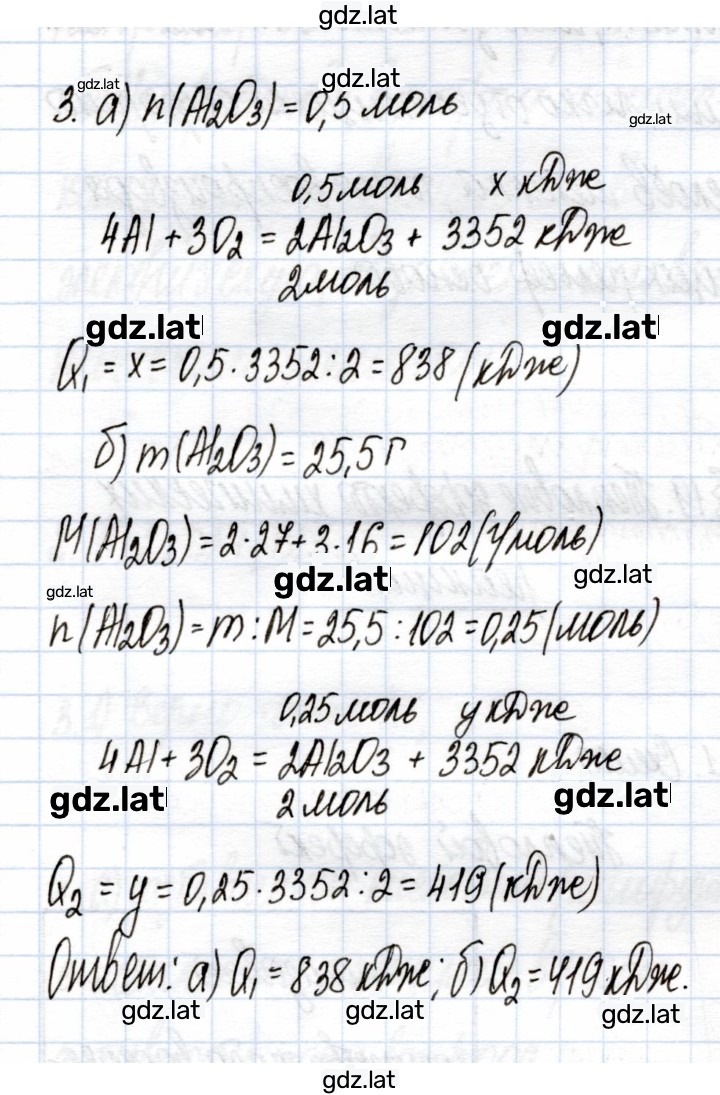 gdz.lat
gdz.lat gdz.lat
3. а) n(Al2O3) = 0,5 моль
gdz.lat
0,5 моль x кДж
4Al + 3O2 = 2Al2O3 + 3352 кДж
2 моль
gdz.lat gdz.lat
Q1 = x = 0,5 · 3352 : 2 = 838 (кДж)
б) m(Al2O3) = 25,5 г
M(Al2O3) = 2 · 27 + 3 · 16 = 102 (г/моль)
gdz.lat gdz.lat
gdz.lat
n(Al2O3) = m : M = 25,5 : 102 = 0,25 (моль)
0,25 моль y кДж
4Al + 3O2 = 2Al2O3 + 3352 кДж
gdz.lat 2 моль gdz.lat
Q2 = y = 0,25 · 3352 : 2 = 419 (кДж)
Ответ: а) Q1 = 838 кДж; б) Q2 = 419 кДж.
gdz.lat gdz.lat gdz.lat
gdz.lat